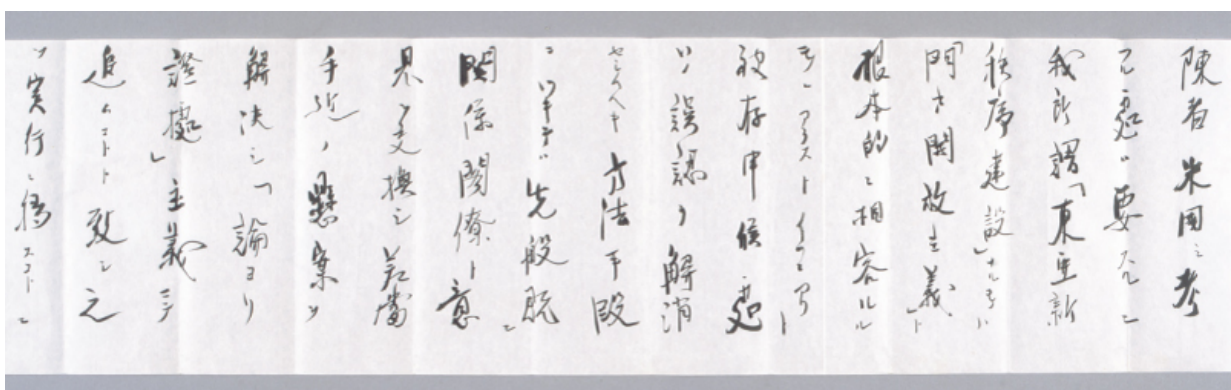 陳者 米国ノ考
フル処ハ要スルニ
我所謂「東亜新
秩序建設」ナルモノハ
門戸開放主義ト
根本的ニ相容ルル
モノニアラストイフニアリト
被存申候処
ツ誤謬ノ解消
セシムヘキ方法手段
ニツキテハ先般既ニ
関係閣僚ト意
見ノ交換ヲシ差当
手近ノ懸案ヲ
解決シ「論ヨリ
證據」主義ニテ
進ムコトト致シ之
ヲ実行ニ移スコトニ